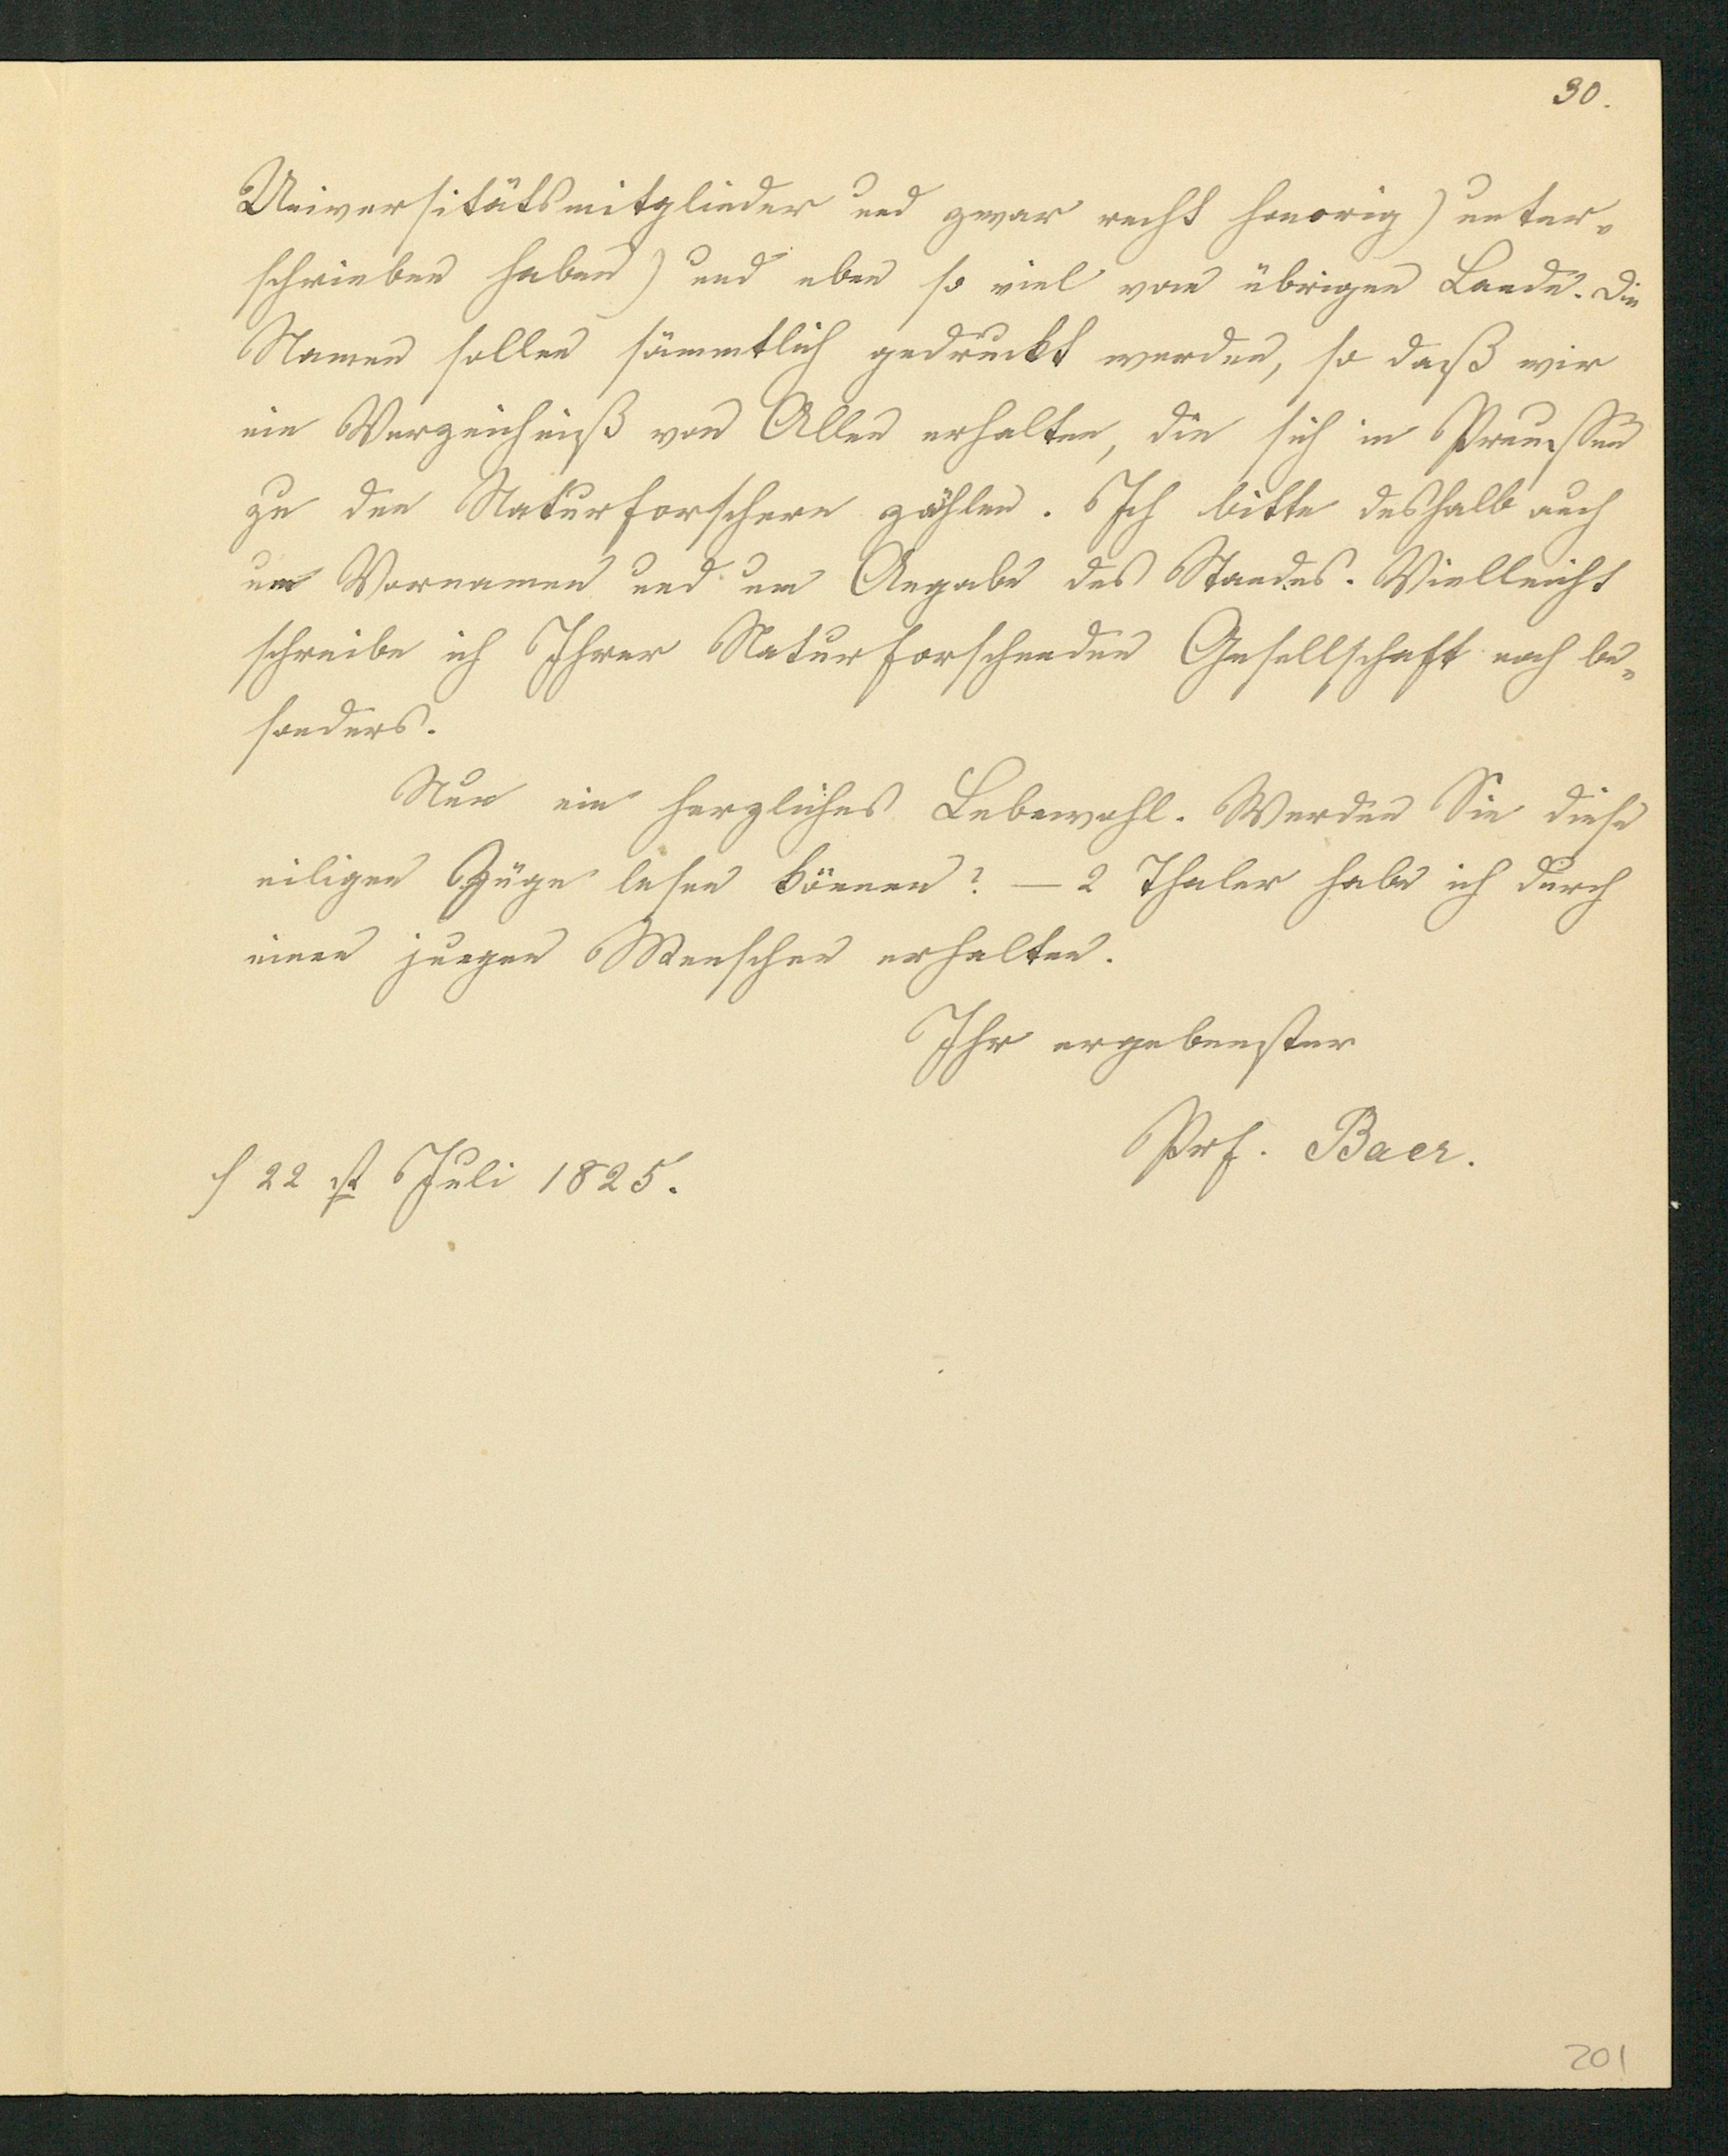 30.
Universitätsmitglieder und zwar recht honorig) unter-
schrieben haben) und eben so viel vom übrigen Lande. Die
Namen sollen sämmtlich gedruckt werden, so daß wir
ein Verzeichniß von Allen erhalten, die sich in Preussen
zu den Naturforschern zählen. Ich bitte deshalb auch
um Vornamen und um Angabe des Standes. Vielleicht
schreibe ich Ihrer Naturforschenden Gesellschaft noch be-
sonders.
Nun ein herzliches Lebewohl. Werden Sie diese
eiligen Züge lesen können? — 2 Thaler habe ich durch
einen jungen Menschen erhalten.
Ihr ergebenster
Prf. Baer.
22 st Juli 1825.
201